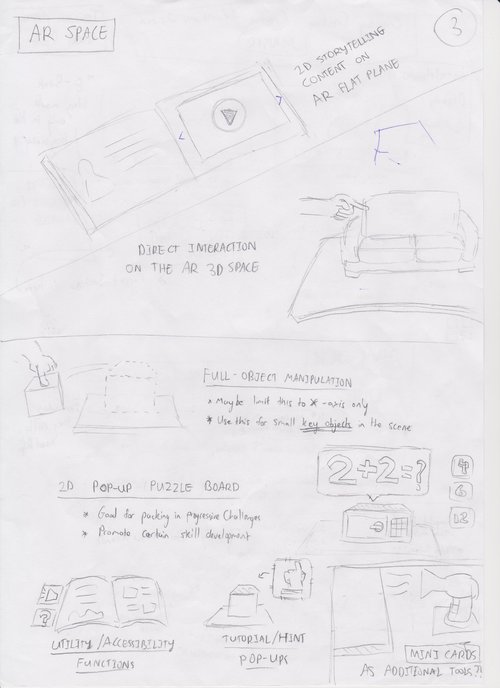 AR SPACE
3
2D STORYTELLING
CONTENT ON
AR FLAT PLANE
DIRECT INTERACTION
ON THE AR 3D SPACE
FULL-OBJECT MANIPULATION
* Maybe limit this to X-axis only
* Use this for small key objects in the scene
2+2=?
4
6
12
2D POP-UP PUZZLE BOARD
* Goal for packing in progressive challenges
* Promote certain skill development
?
UTILITY/ACCESSIBILITY
FUNCTIONS
TUTORIAL/HINT
POP-UPS
MINI CARDS
AS ADDITIONAL TOOLS?!